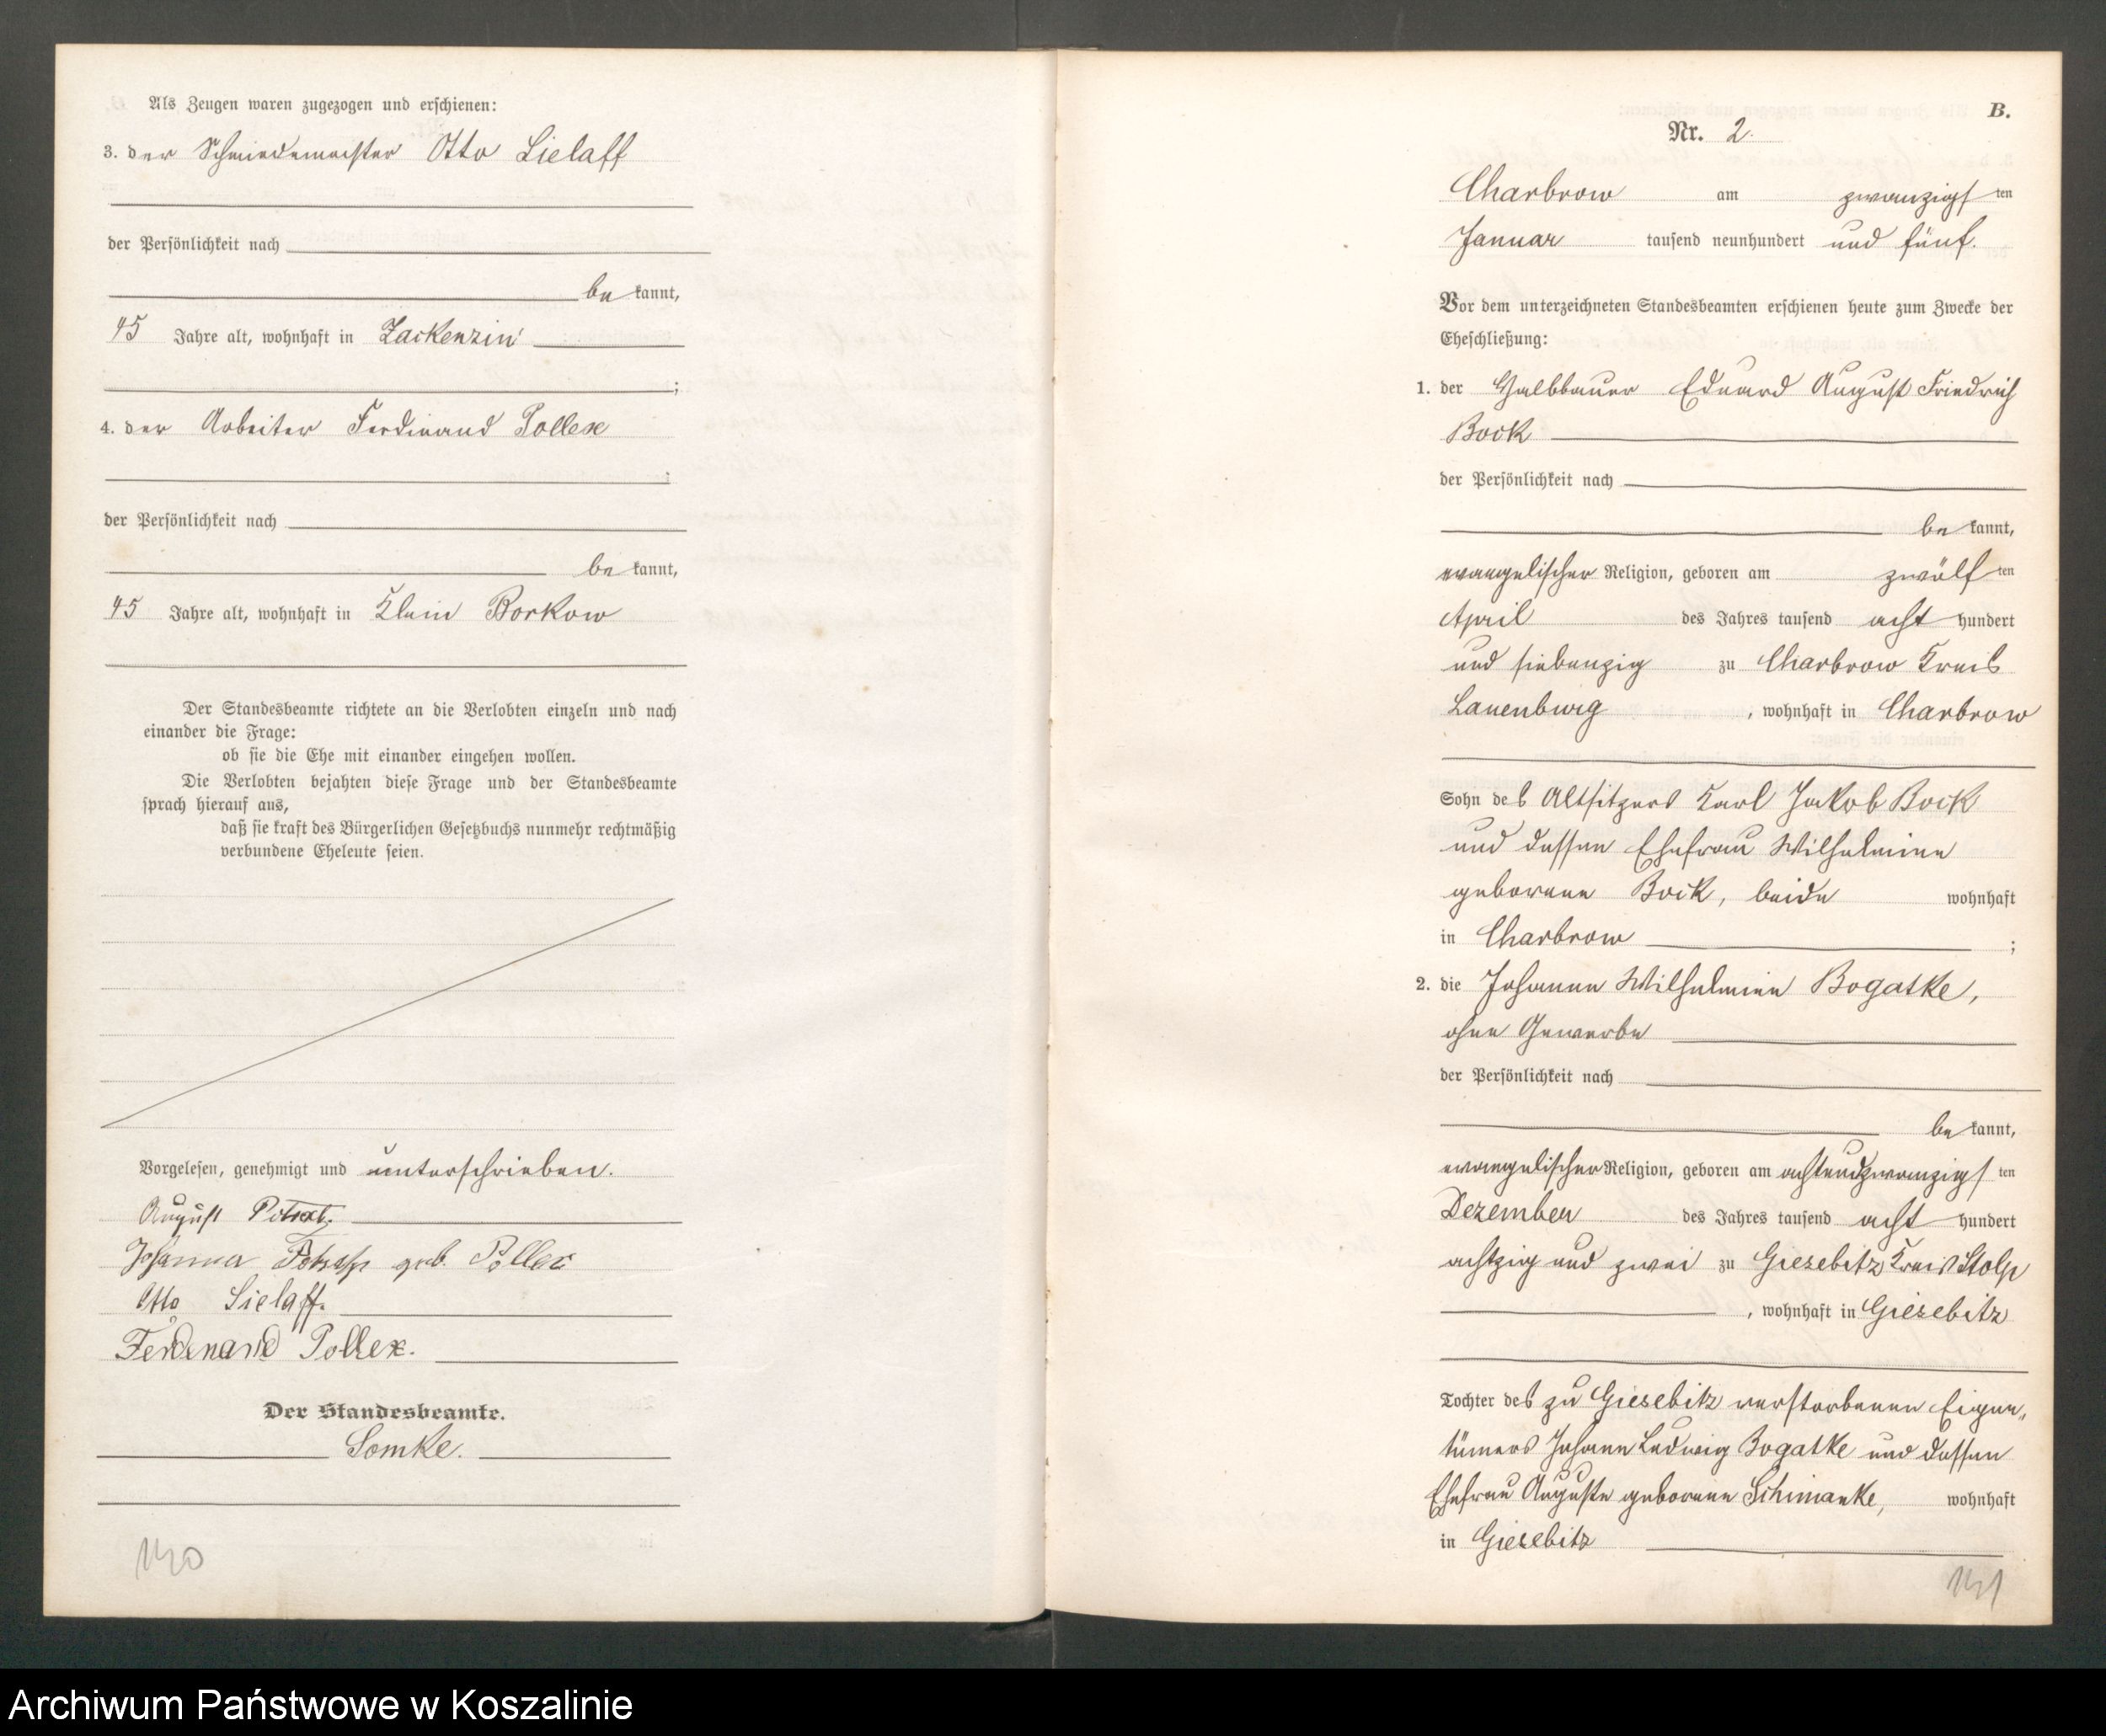 Als Zeugen waren zugezogen und erschienen:
3. der Schmiedemeister Otto Lielaff
der Persönlichkeit nach
be kannt,
45 Jahre alt, wohnhaft in Zackenzin
;
4. der Arbeiter Ferdinand Pollex
der Persönlichkeit nach
be kannt,
45 Jahre alt, wohnhaft in Klein Borkow
Der Standesbeamte richtete an die Verlobten einzeln und nach
einander die Frage:
ob sie die Ehe mit einander eingehen wollen.
Die Verlobten bejahten diese Frage und der Standesbeamte
sprach hierauf aus,
daß sie kraft des Bürgerlichen Gesetzbuchs nunmehr rechtmäßig
verbundene Eheleute seien.
Vorgelesen, genehmigt und unterschrieben.
August
Johanna geb. Pollex
Otto Lielaff.
Ferdinand Pollex.
Der Standesbeamte.
Somke.
140
B.
Nr. 2.
Charbrow am zwanzigsten
Januar tausend neunhundert und fünf.
Vor dem unterzeichneten Standesbeamten erschienen heute zum Zwecke der
Eheschließung:
1. der Halbbauer Eduard August Friedrich
Bock
der Persönlichkeit nach
be kannt,
evangelischer Religion, geboren am zwölften
April des Jahres tausend acht hundert
und siebenzig zu Charbrow Kreis
Lauenburg, wohnhaft in Charbrow
Sohn des Altsitzers Karl Jakob Bock
und dessen Ehefrau Wilhelmine
geborene Bock, beide wohnhaft
in Charbrow ;
2. die Johanne Wilhelmine Bogatke,
ohne Gewerbe
der Persönlichkeit nach
be kannt,
evangelischer Religion, geboren am achtundzwanzigsten
Dezember des Jahres tausend acht hundert
achtzig und zwei zu Giesebitz Kreis Stolp
, wohnhaft in Giesebitz
Tochter des zu Giesebitz verstorbenen Eigen„
tümers Johann Ludwig Bogatke und dessen
Ehefrau Auguste geborene Schimanke, wohnhaft
in Giesebitz
141
Archiwum Państwowe w Koszalinie